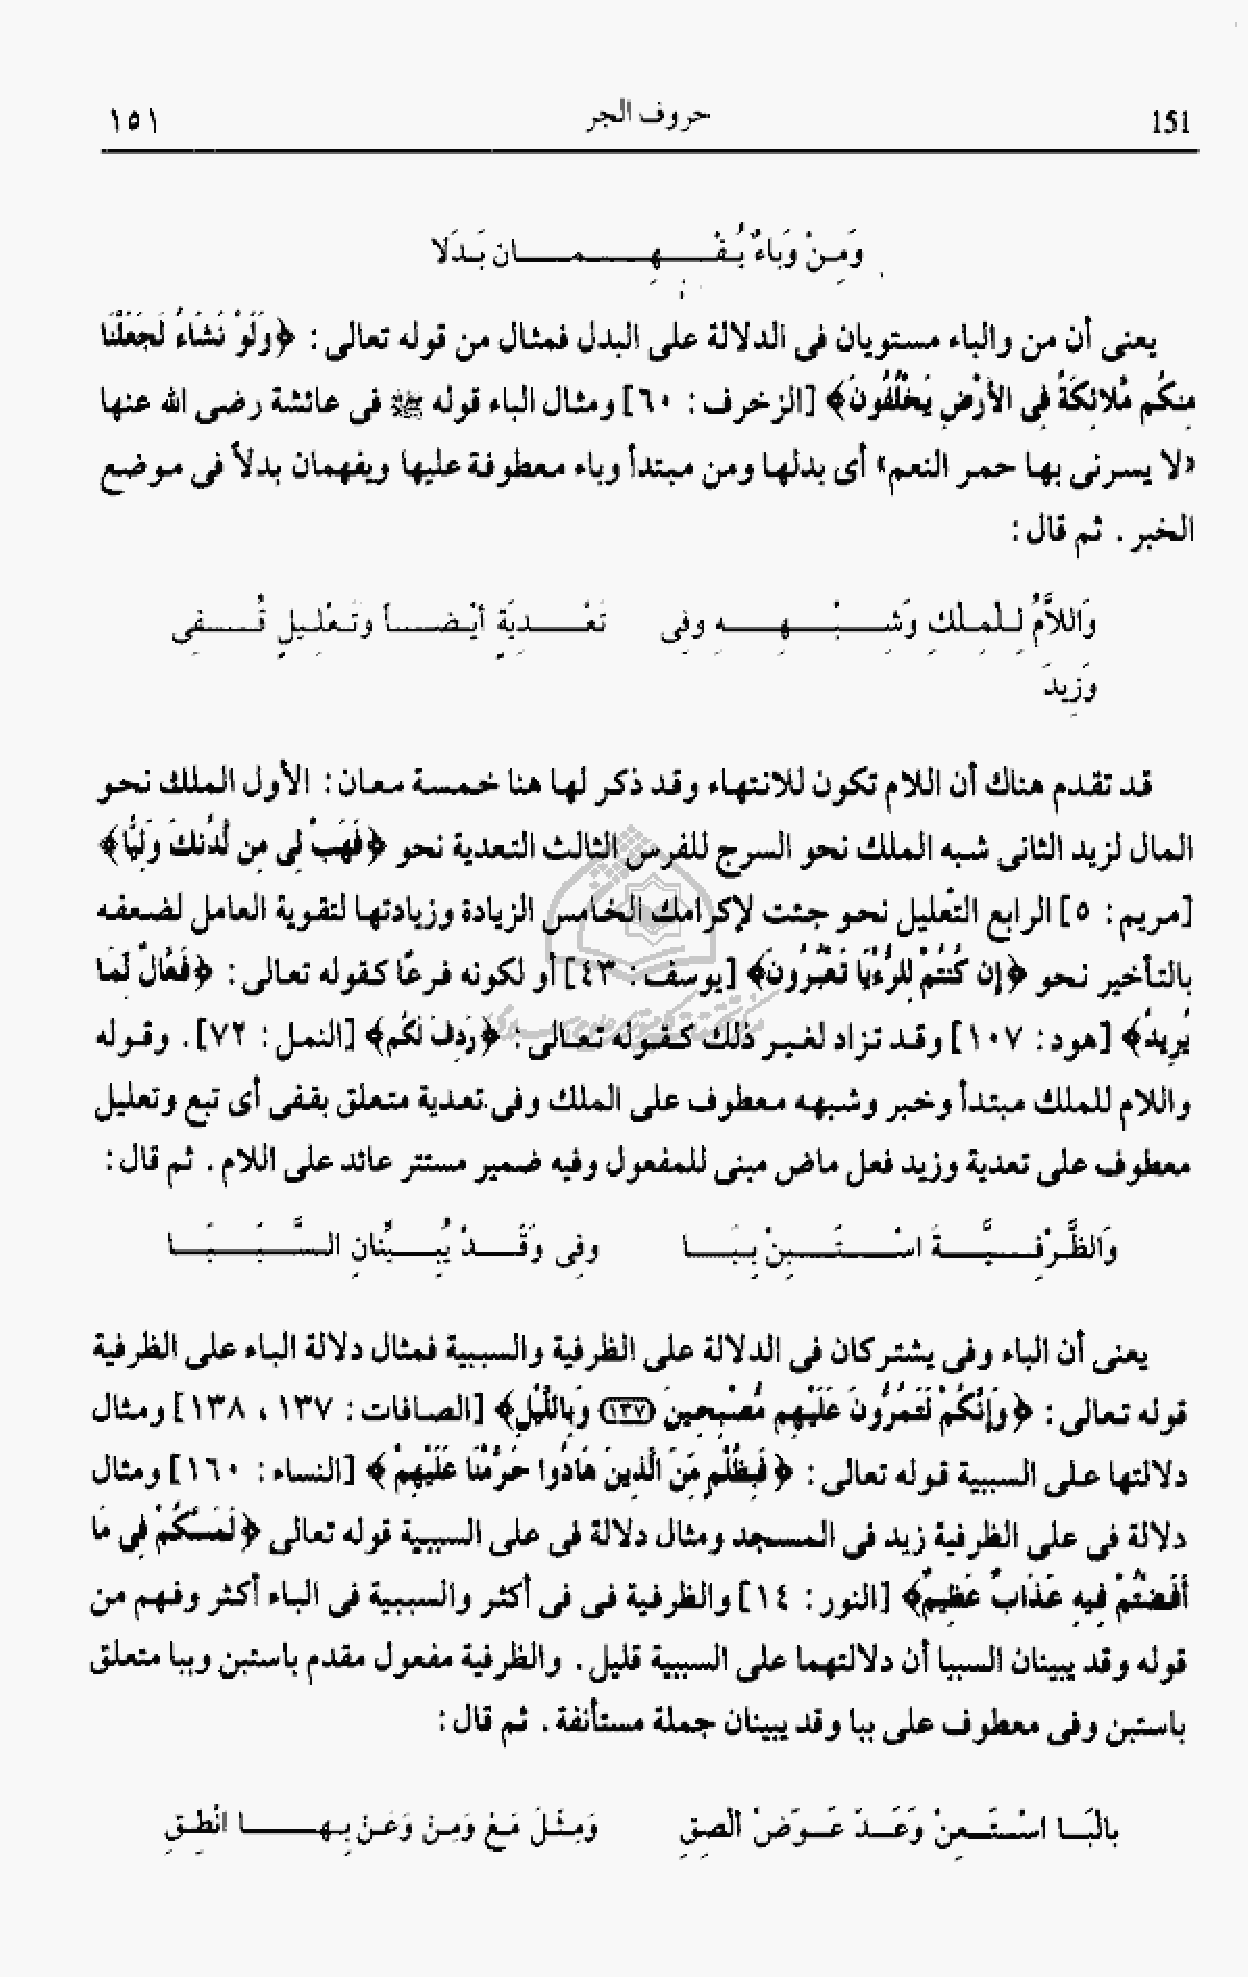 151 حروف الجر ١٥١
وَمِنْ وَبَاءٌ يُفْهِمَانِ بَدَلَا
يعنى أن من والباء مستويان فى الدلالة على البدل فمثال من قوله تعالى : ﴿وَلَوْ نَشَاءُ لَجَعَلْنَا
مِنكُم مَّلائِكَةً فِى الأَرْضِ يَخْلُفُونَ﴾ [الزخرف : ٦٠] ومثال الباء قوله ﷺ فى عائشة رضى الله عنها
«لا يسرنى بها حمر النعم» أى بدلها ومن مبتدأ وباء معطوفة عليها ويفهمان بدلاً فى موضع
الخبر . ثم قال :
وَاللَّامُ لِلْمِلْكِ وَشِبْهِهِ وفِى تَعْدِيَةٍ أيْضاً وتَعْلِيلٍ قُفِى
وَزِيدَ
قد تقدم هناك أن اللام تكون للانتهاء وقد ذكر لها هنا خمسة معان : الأول الملك نحو
المال لزيد الثانى شبه الملك نحو السرج للفرس الثالث التعدية نحو ﴿فَهَبْ لِى مِن لَّدُنكَ وَلِيًّا﴾
[مريم : ٥] الرابع التعليل نحو جئت لإكرامك الخامس الزيادة وزيادتها لتقوية العامل لضعفه
بالتأخير نحو ﴿إن كُنتُمْ لِلرُّءْيَا تَعْبُرُونَ﴾ [يوسف : ٤٣] أو لكونه فرعًا كقوله تعالى : ﴿فَعَّالٌ لِّمَا
يُرِيدُ﴾ [هود : ١٠٧] وقد تزاد لغير ذلك كقوله تعالى : ﴿رَدِفَ لَكُم﴾ [النمل : ٧٢]. وقوله
واللام للملك مبتدأ وخبر وشبهه معطوف على الملك وفى تعدية متعلق بقفى أى تبع وتعليل
معطوف على تعدية وزيد فعل ماض مبنى للمفعول وفيه ضمير مستتر عائد على اللام . ثم قال :
وَالظَّرْفِيَّةَ اسْتَبِنْ بِبَا وفِى وَقَدْ يُبَيِّنَانِ السَّبَبَا
يعنى أن الباء وفى يشتركان فى الدلالة على الظرفية والسببية فمثال دلالة الباء على الظرفية
قوله تعالى : ﴿وَإِنَّكُمْ لَتَمُرُّونَ عَلَيْهِم مُّصْبِحِينَ (١٣٧) وَبِاللَّيْلِ﴾ [الصافات : ١٣٧ ، ١٣٨] ومثال
دلالتها على السببية قوله تعالى : ﴿فَبِظُلْمٍ مِّنَ الَّذِينَ هَادُوا حَرَّمْنَا عَلَيْهِمْ﴾ [النساء : ١٦٠] ومثال
دلالة فى على الظرفية زيد فى المسجد ومثال دلالة فى على السببية قوله تعالى ﴿لَمَسَّكُمْ فِى مَا
أَفَضْتُمْ فِيهِ عَذَابٌ عَظِيمٌ﴾ [النور : ١٤] والظرفية فى فى أكثر والسببية فى الباء أكثر وفهم من
قوله وقد يبينان السببا أن دلالتهما على السببية قليل . والظرفية مفعول مقدم باستبن وببا متعلق
باستبن وفى معطوف على ببا وقد يبينان جملة مستأنفة . ثم قال :
بِالْبَا اسْتَعِنْ وَعَدِّ عَوِّضْ أَلْصِقِ وَمِثْلَ مَعْ وَمِنْ وَعَنْ بِهَا انْطِقِ